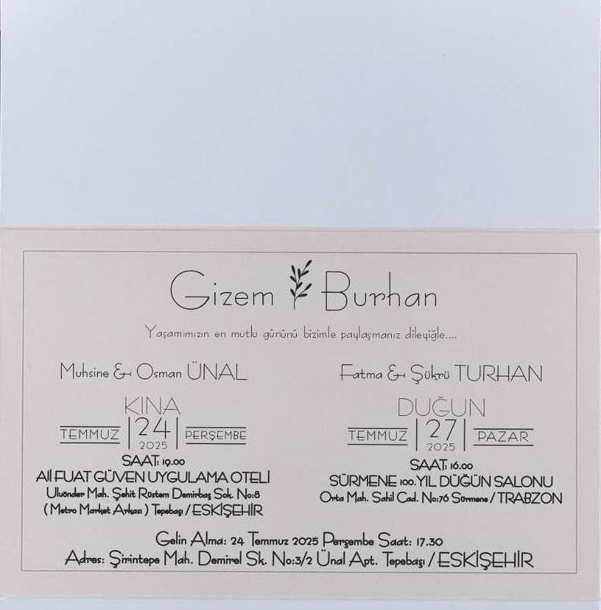 Gizem Burhan
Yaşamımızın en mutlu gününü bizimle paylaşmanız dileyiğle....
Muhsine & Osman ÜNAL
Fatma & Şükrü TURHAN
KINA
TEMMUZ 24 PERŞEMBE
2025
SAAT: 19.00
Ali FUAT GÜVEN UYGULAMA OTELİ
Uluönder Mah. Şehit Rüstem Demirbaş Sok. No:8
( Metro Market Arkası ) Tepebaşı / ESKİŞEHİR
DUĞUN
TEMMUZ 27 PAZAR
2025
SAAT: 16.00
SÜRMENE 100.YIL DÜĞÜN SALONU
Orta Mah. Sahil Cad. No:76 Sürmene / TRABZON
Gelin Alma: 24 Temmuz 2025 Perşembe Saat: 17.30
Adres: Şirintepe Mah. Demirel Sk. No:3/2 Ünal Apt. Tepebaşı / ESKİŞEHİR